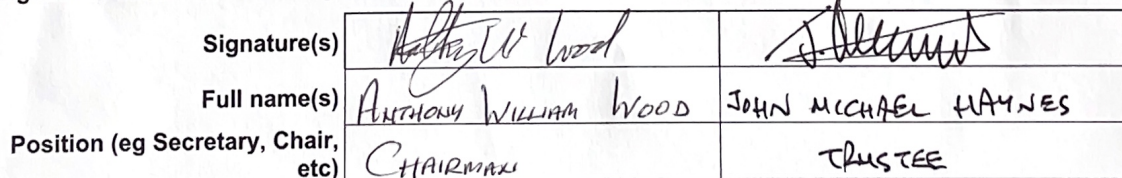 Signature(s) Anthony W Wood
Full name(s) ANTHONY WILLIAM WOOD JOHN MICHAEL HAYNES
Position (eg Secretary, Chair,
etc) CHAIRMAN TRUSTEE